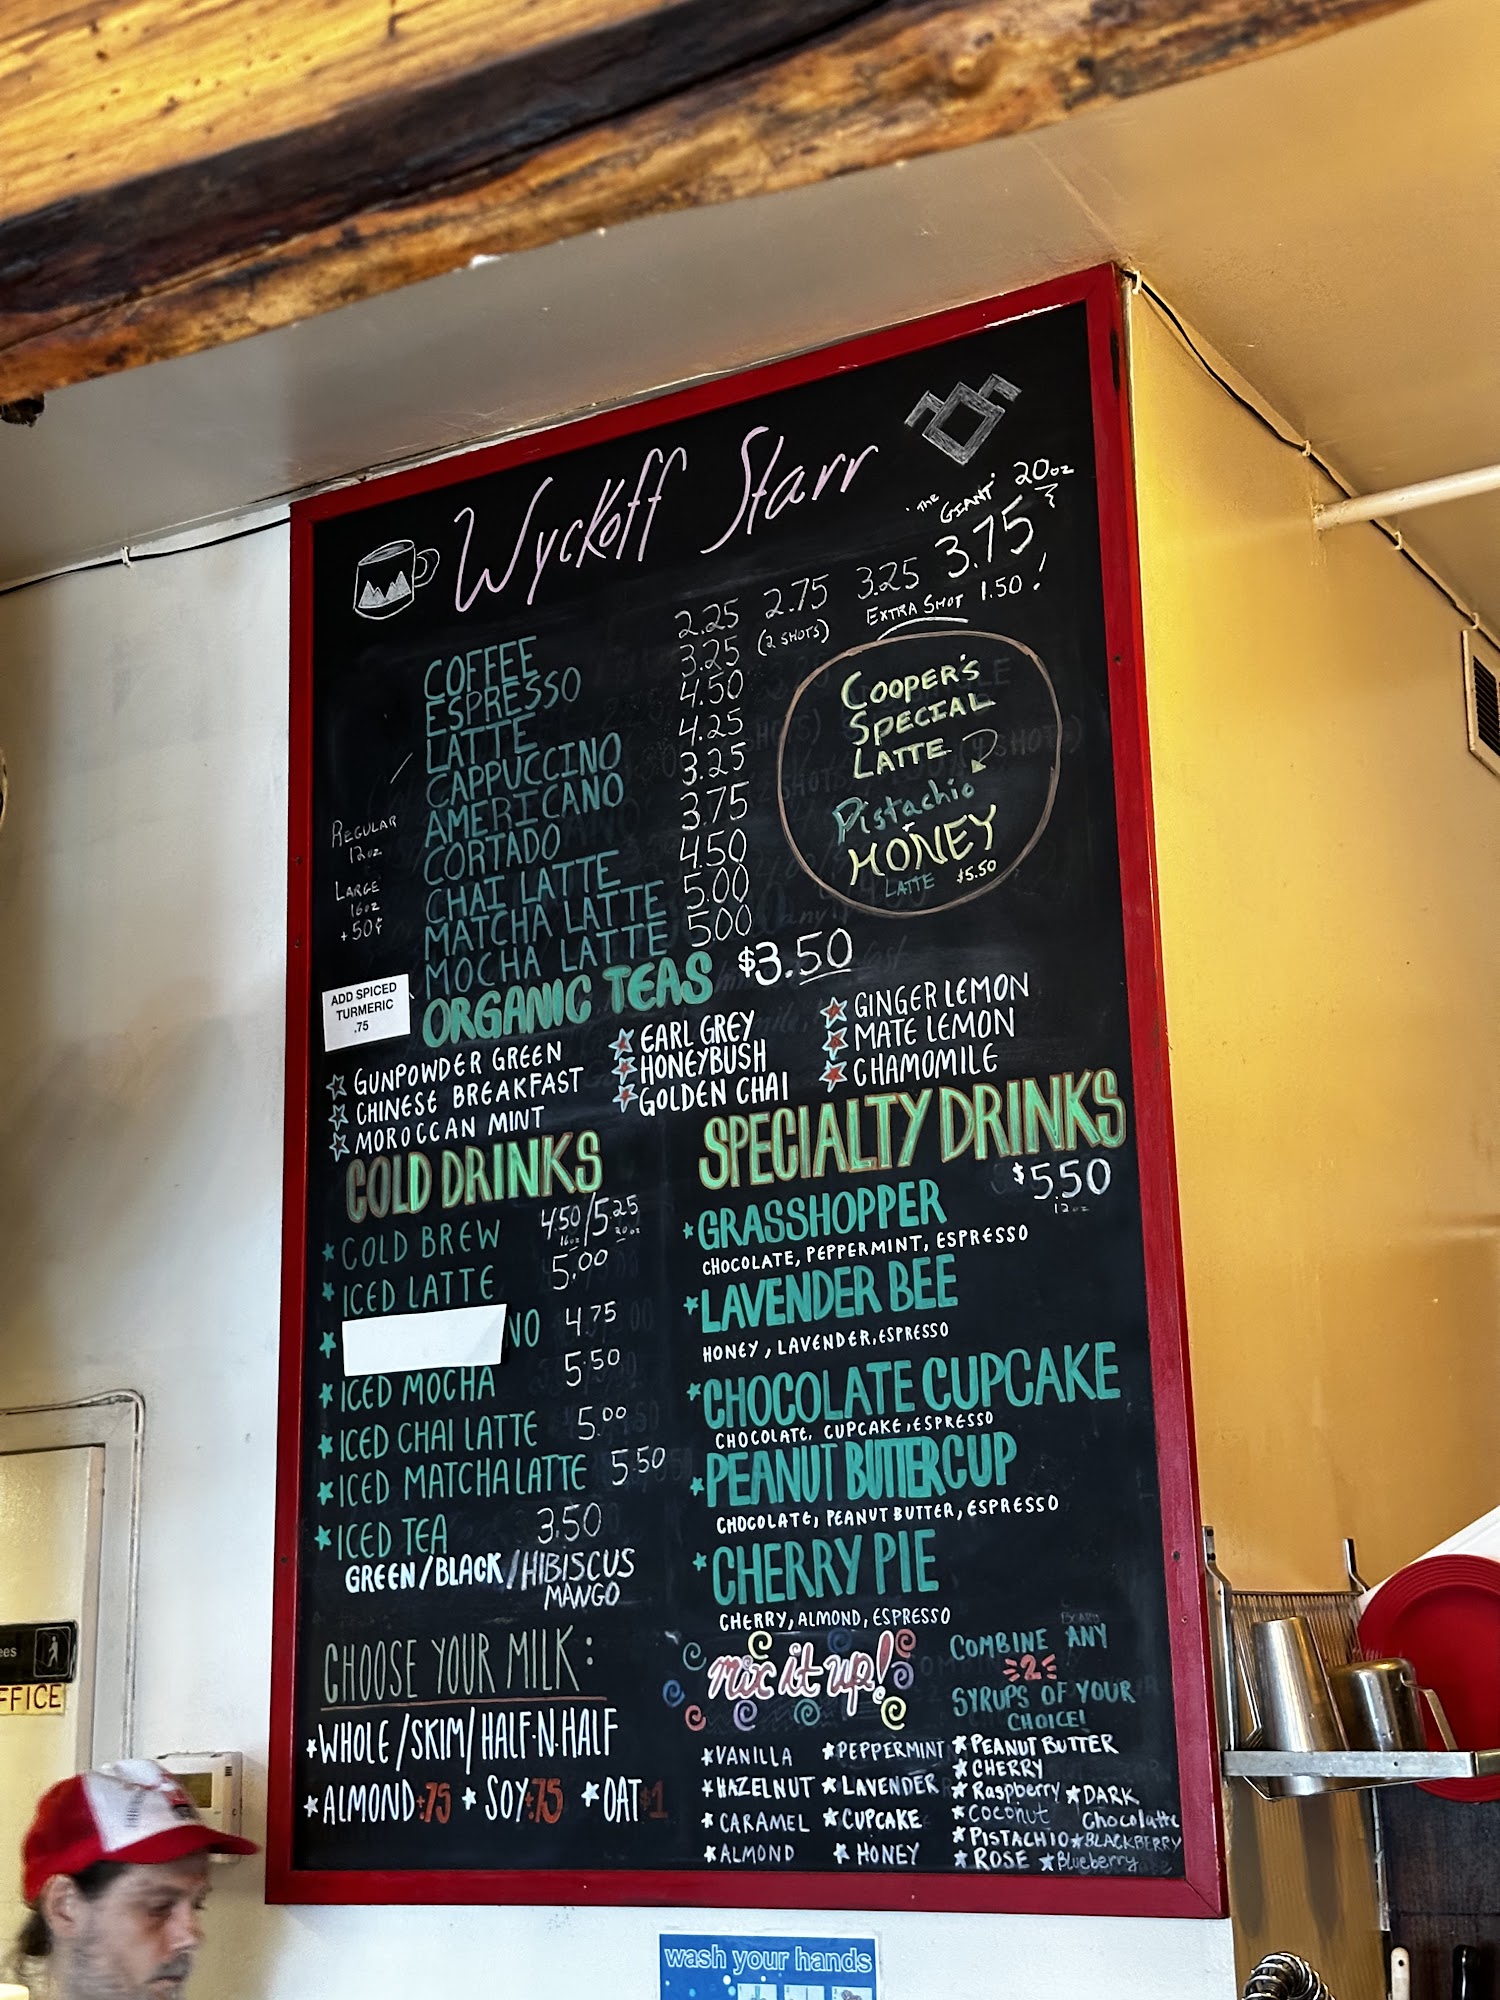 Wyckoff Starr
"THE GIANT" 20oz
COFFEE 2.25 2.75 3.25 3.75
ESPRESSO 3.25 (2 SHOTS) EXTRA SHOT 1.50!
LATTE 4.50
CAPPUCCINO 4.25
AMERICANO 3.25
CORTADO 3.75
CHAI LATTE 4.50
MATCHA LATTE 5.00
MOCHA LATTE 5.00
REGULAR
12oz
LARGE
16oz
+50¢
COOPER'S
SPECIAL
LATTE
Pistachio
HONEY
LATTE $5.50
ADD SPICED
TURMERIC
.75
ORGANIC TEAS $3.50
GUNPOWDER GREEN
CHINESE BREAKFAST
MOROCCAN MINT
EARL GREY
HONEYBUSH
GOLDEN CHAI
GINGER LEMON
MATE LEMON
CHAMOMILE
COLD DRINKS
COLD BREW 4.50/5.25
16oz 20oz
ICED LATTE 5.00
NO 4.75
ICED MOCHA 5.50
ICED CHAI LATTE 5.00
ICED MATCHA LATTE 5.50
ICED TEA 3.50
GREEN/BLACK/HIBISCUS
MANGO
SPECIALTY DRINKS
$5.50
12oz
GRASSHOPPER
CHOCOLATE, PEPPERMINT, ESPRESSO
LAVENDER BEE
HONEY, LAVENDER, ESPRESSO
CHOCOLATE CUPCAKE
CHOCOLATE, CUPCAKE, ESPRESSO
PEANUT BUTTERCUP
CHOCOLATE, PEANUT BUTTER, ESPRESSO
CHERRY PIE
CHERRY, ALMOND, ESPRESSO
CHOOSE YOUR MILK:
WHOLE/SKIM/HALF-N-HALF
ALMOND +.75 SOY +.75 OAT $1
mix it up!
COMBINE ANY
2
SYRUPS OF YOUR
CHOICE!
VANILLA
HAZELNUT
CARAMEL
ALMOND
PEPPERMINT
LAVENDER
CUPCAKE
HONEY
PEANUT BUTTER
CHERRY
Raspberry
Coconut
PISTACHIO
ROSE
DARK
Chocolatte
BLACKBERRY
Blueberry
ees
FFICE
wash your hands